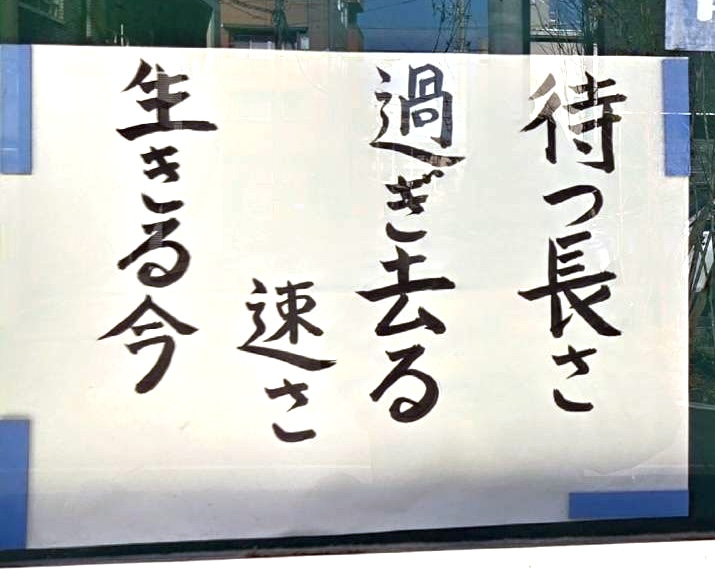 待つ長さ
過ぎ去る
速さ
生きる今